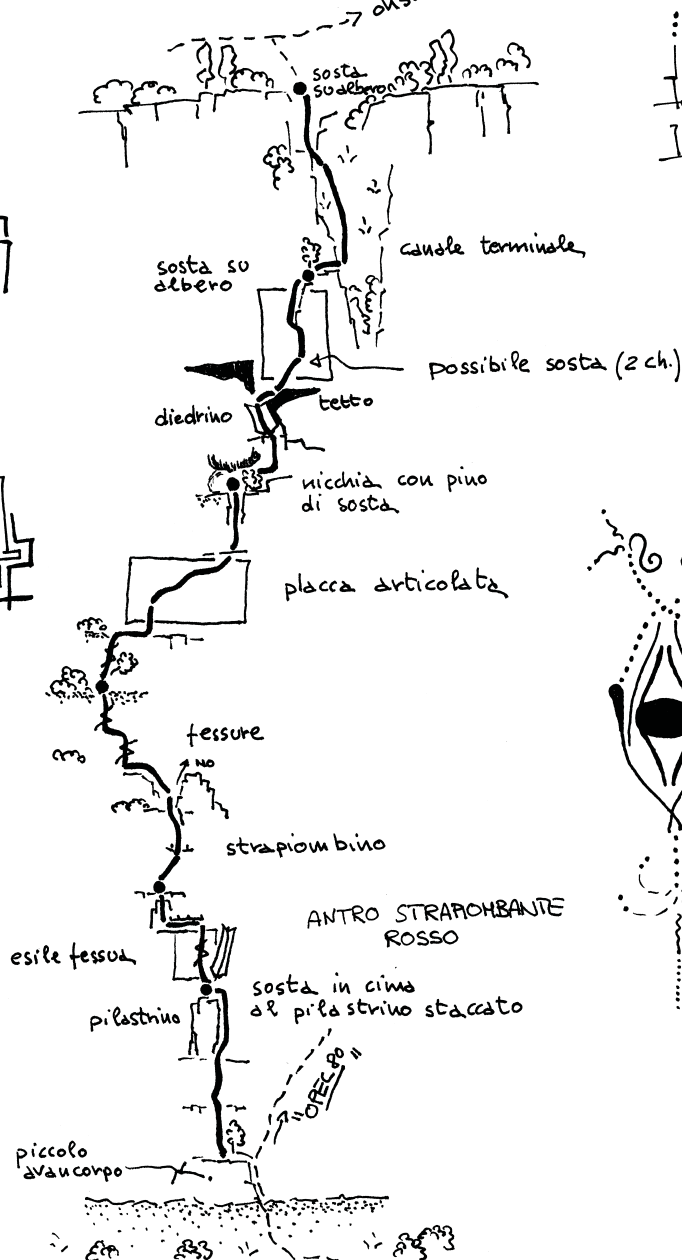 sosta
su albero
canale terminale
sosta su
albero
possibile sosta (2 ch.)
tetto
diedrino
nicchia con pino
di sosta
placca articolata
fessure
NO
strapiombino
ANTRO STRAPIOMBANTE
ROSSO
esile fessua
sosta in cima
al pilastrino staccato
pilastrino
"OPEC 80"
piccolo
avancorpo